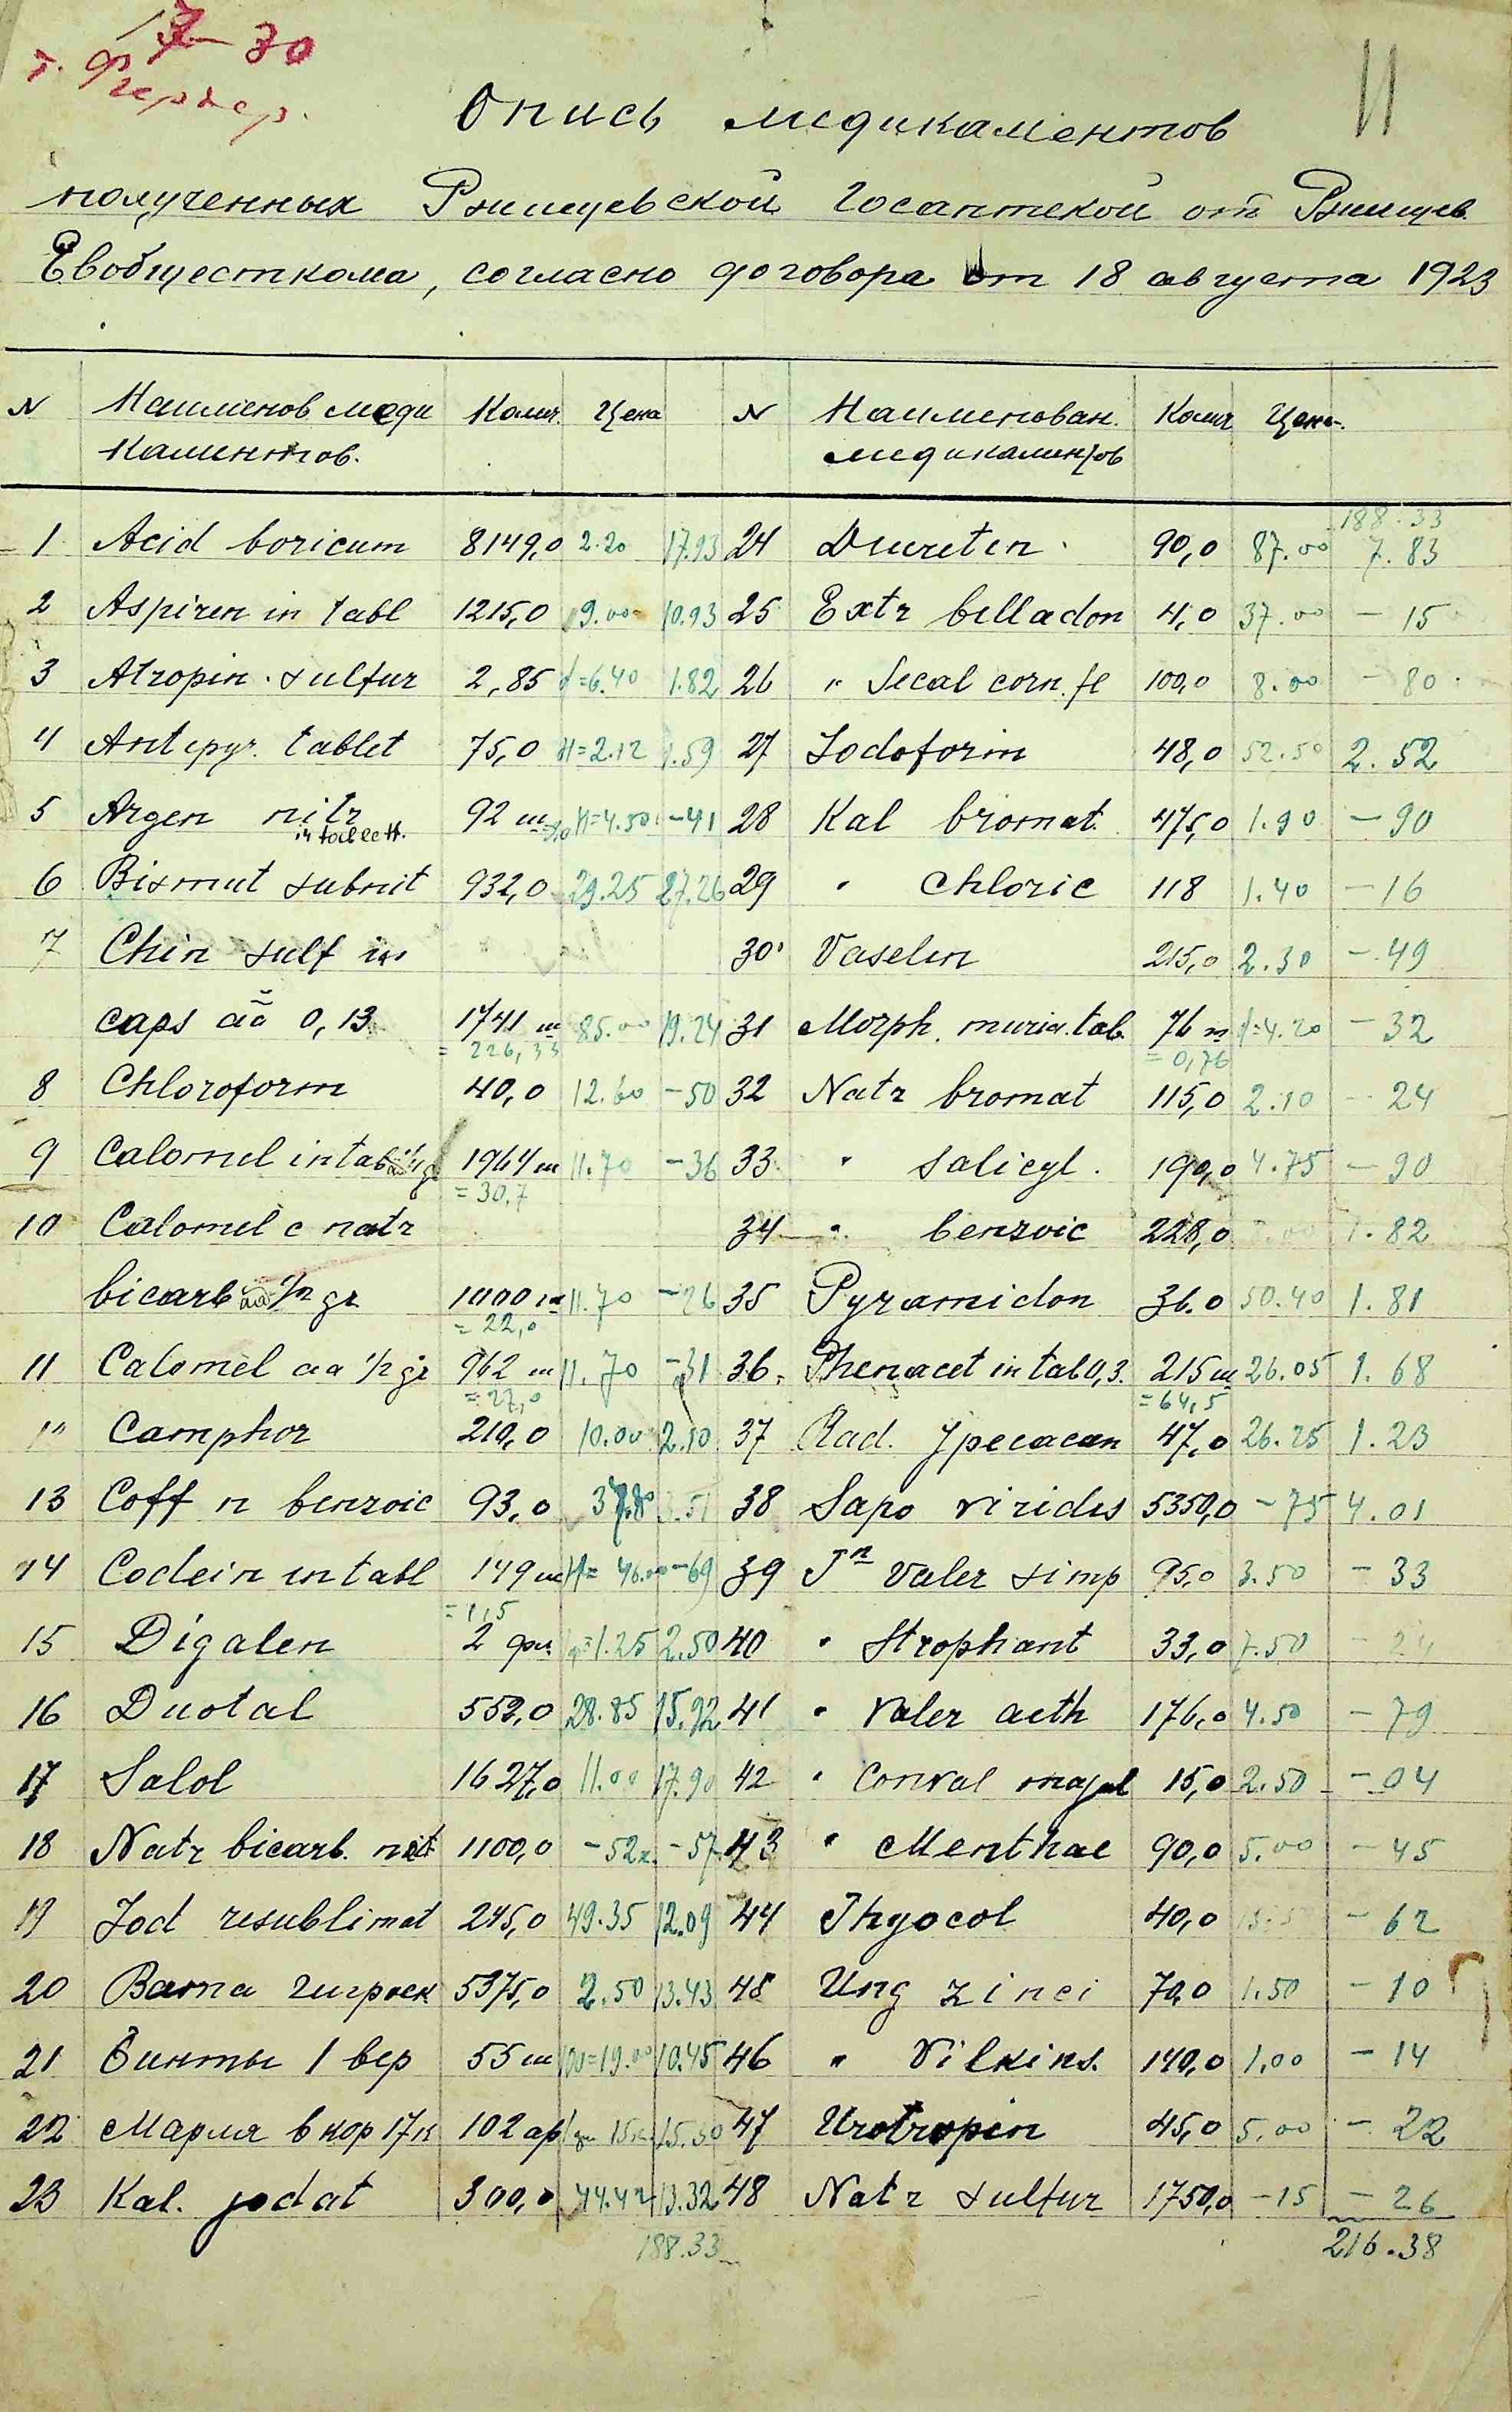 17 — 30
т.
11
Опись медикаментов
полученных Ржищевской Госаптекой от Ржищев.
Евобщесткома, согласно договора от 18 августа 1923
N Наименов меди Колич. Цена N Наименован. Колич Цена
каментов. медикаментов
188.33
1 Acid boricum 8149,0 2.20 17.93 24 Diuretin 90,0 87.00 7.83
2 Aspiren in tabl 1215,0 9.00 10.93 25 Extr belladon 4,0 37.00 — 15
3 Atropin. sulfur 2,85 1=6.40 1.82 26 " Secal corn. fl 100,0 8.00 — 80
4 Antipyr. tablet 75,0 H=2.12 1.59 27 Jodoform 48,0 52.50 2.52
5 Argen nitr 92 ш H=4.50 —41 28 Kal bromat. 475,0 1.90 — 90
in tablett.
6 Bismut subnit 932,0 29.25 27.26 29 " Chloric 118 1.40 — 16
7 Chin sulf in 30 Vaselin 215,0 2.30 — 49
caps aa 0,13 1741 ш 85.00 19.24 31 Morph. muria. tab. 76 ш 1=4.20 — 32
= 226,33 = 0,76
8 Chloroform 40,0 12.60 —50 32 Natr bromat 115,0 2.10 — 24
9 Calomel in tab 1964 ш 11.70 —36 33 " Salicyl. 190,0 4.75 — 90
= 30,7
10 Calomel c natr 34 " benzoic 228,0 8.00 1.82
bicarb aa 1/2 gr 1000 ш 11.70 —26 35 Pyramidon 36.0 50.40 1.81
= 22,0
11 Calomel aa 1/2 gr 962 ш 11.70 —31 36. Phenacet in tab 0,3. 215 ш 26.05 1.68
= 27,0 = 64,5
12 Camphor 210,0 10.00 2.10 37 Rad. Ypecacan 47,0 26.25 1.23
13 Coff n benzoic 93,0 3.51 38 Sapo viridis 5350,0 —75 4.01
14 Codein in tabl 149 ш H= 46.00 —69 39 Tn Valer simp 95,0 3.50 — 33
= 1,5
15 Digalen 2 фл. 1.25 2.50 40 " Strophant 33,0 7.50 — 24
16 Duotal 552,0 28.85 15.92 41 " Valer aeth 176,0 4.50 — 79
17 Salol 1627,0 11.00 17.90 42 " Conval majal 15,0 2.50 — 04
18 Natr bicarb. 1100,0 —52к. —57 43 " Menthae 90,0 5.00 — 45
19 Jod resublimat 245,0 49.35 12.09 44 Thyocol 40,0 — 62
20 Вата гигроск 5375,0 2.50 13.43 45 Ung zinci 70,0 1.50 — 10
21 Бинты 1 вер 55 ш 100=19.00 10.45 46 " Vilkins. 140,0 1.00 — 14
22 Марля в кор 17к 102 ар 15к 15.30 47 Urotropin 45,0 5.00 — 22
23 Kal. jodat 300,0 44.42 13.32 48 Natr sulfur 1750,0 —15 — 26
188.33 216.38